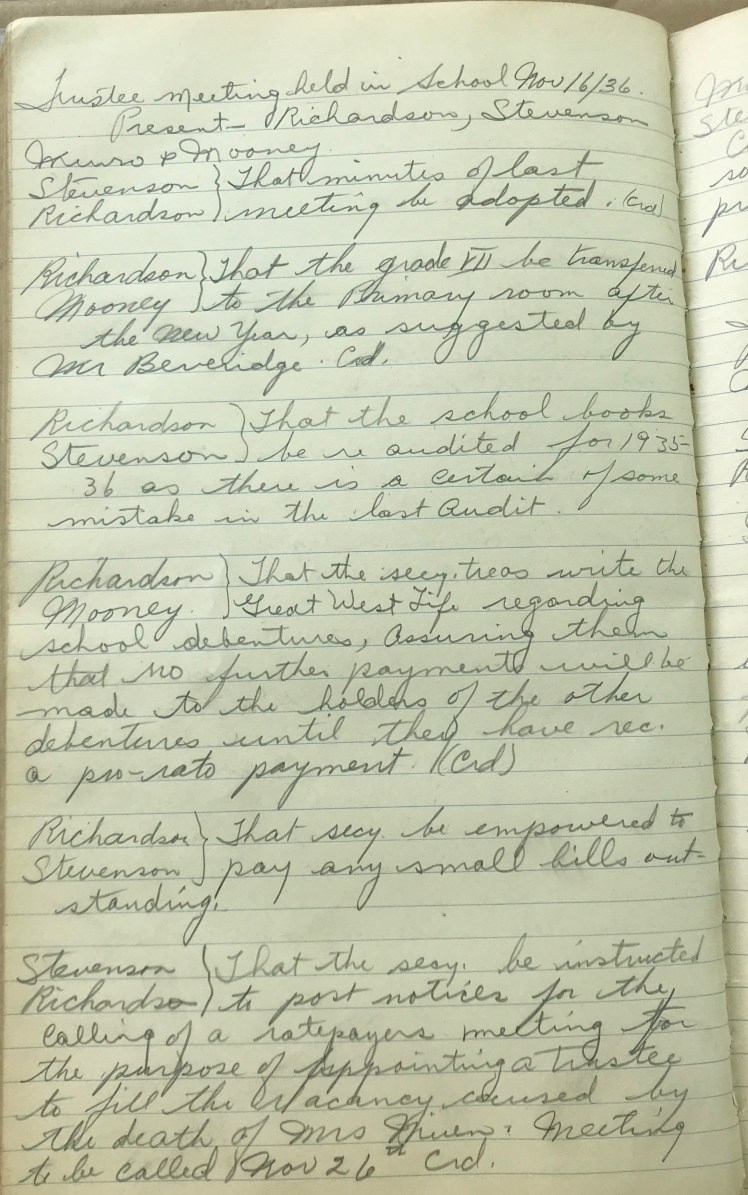 Trustee meeting held in School Nov 16/36.
Present— Richardson, Stevenson
Munro & Mooney
Stevenson } That minutes of last
Richardson } meeting be adopted. (Crd)
Richardson } That the grade VII be transferred
Mooney } to the Primary room after
the New Year, as suggested by
Mr Beveridge. Crd.
Richardson } That the school books
Stevenson } be re audited for 1935-
36 as there is a certain of some
mistake in the last Audit.
Richardson } That the secy. treas write the
Mooney. } Great West Life regarding
school debentures, Assuring them
that no further payments will be
made to the holders of the other
debentures until they have rec.
a pro-rato payment. (Crd)
Richardson } That secy. be empowered to
Stevenson } pay any small bills out-
standing.
Stevenson } That the secy. be instructed
Richardson } to post notices for the
Calling of a ratepayers meeting for
the purpose of Appointing a Trustee
to fill the vacancy caused by
the death of Mrs Niven. Meeting
to be called Nov 26 Crd.